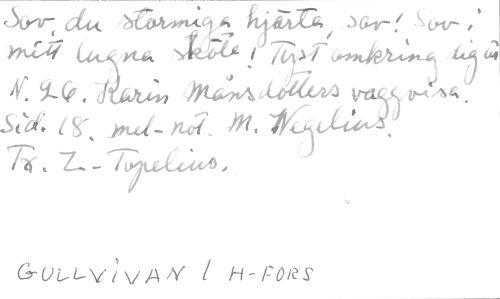 Sov, du stormiga hjärta, sov! Sov i
mitt lugna sköte! Tyst omkring dig är
N. 26. Karin Månsdotters vaggvisa.
Sid. 18. mel-not. M. Wegelius.
Tx. Z-Topelius.
GULLVIVAN / H-FORS